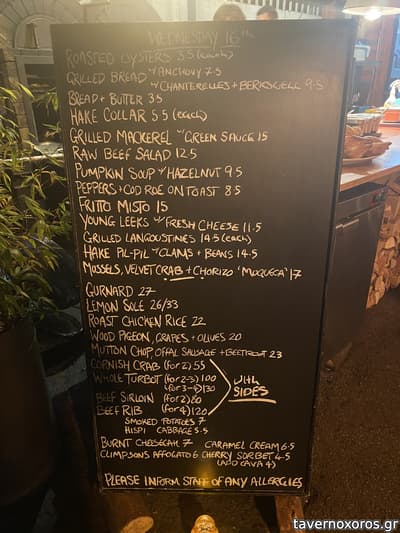 WEDNESDAY 16th
ROASTED OYSTERS 3.5 (each)
GRILLED BREAD w/ ANCHOVY 7.5
w/ CHANTERELLES + BERKSWELL 9.5
BREAD + BUTTER 3.5
HAKE COLLAR 5.5 (each)
GRILLED MACKEREL w/ GREEN SAUCE 15
RAW BEEF SALAD 12.5
PUMPKIN SOUP w/ HAZELNUT 9.5
PEPPERS + COD ROE ON TOAST 8.5
FRITTO MISTO 15
YOUNG LEEKS w/ FRESH CHEESE 11.5
GRILLED LANGOUSTINES 14.5 (each)
HAKE PIL-PIL w/ CLAMS + BEANS 14.5
MUSSELS, VELVET CRAB + CHORIZO 'MOQUECA' 17
GURNARD 27
LEMON SOLE 26/33
ROAST CHICKEN RICE 22
WOOD PIGEON, GRAPES + OLIVES 20
MUTTON CHOP, OFFAL SAUSAGE + BEETROOT 23
CORNISH CRAB (for 2) 55
WHOLE TURBOT (for 2-3) 100
(for 3-4) 130
BEEF SIRLOIN (for 2) 80
BEEF RIB (for 4) 120
WITH
SIDES
SMOKED POTATOES 7
HISPI CABBAGE 5.5
BURNT CHEESECAKE 7 CARAMEL CREAM 6.5
CLIMPSONS AFFOGATO 6 CHERRY SORBET 4.5
(ADD CAVA 4)
PLEASE INFORM STAFF OF ANY ALLERGIES
tavernoxoros.gr